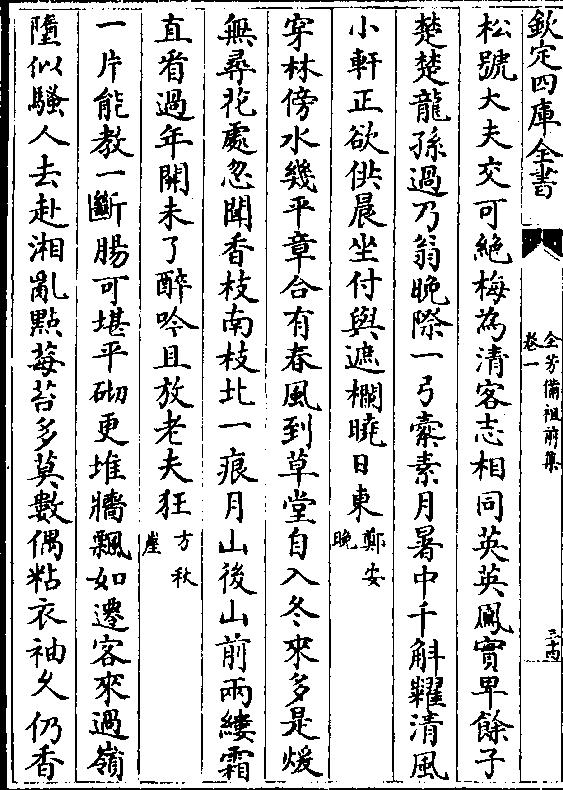 欽定四庫全書
全芳備祖前集
卷一
三十四
松號大夫交可絕梅為清客志相同英英鳳實卑餘子
楚楚龍孫過乃翁晚際一弓橐素月暑中千斛糶清風
小軒正欲供晨坐付與遮欄曉日東
鄭安
晚
穿林傍水幾平章合有春風到草堂自入冬來多是煖
無尋花處忽聞香枝南枝北一痕月山後山前兩縷霜
直看過年開未了醉吟且放老夫狂
方秋
崖
一片能教一斷腸可堪平砌更堆牆飄如遷客來過嶺
墮似騷人去赴湘亂點莓苔多莫數偶粘衣袖久仍香